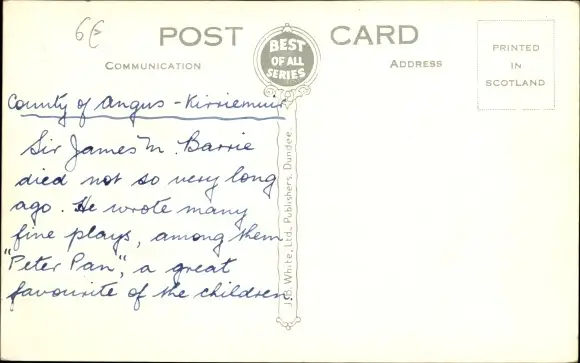 6€
POST CARD
BEST
OF ALL
SERIES
COMMUNICATION
ADDRESS
PRINTED
IN
SCOTLAND
County of Angus - Kirriemuir
Sir James M. Barrie
died not so very long
ago. He wrote many
fine plays, among them
"Peter Pan", a great
favourite of the children
J.B. White, Ltd., Publishers, Dundee.